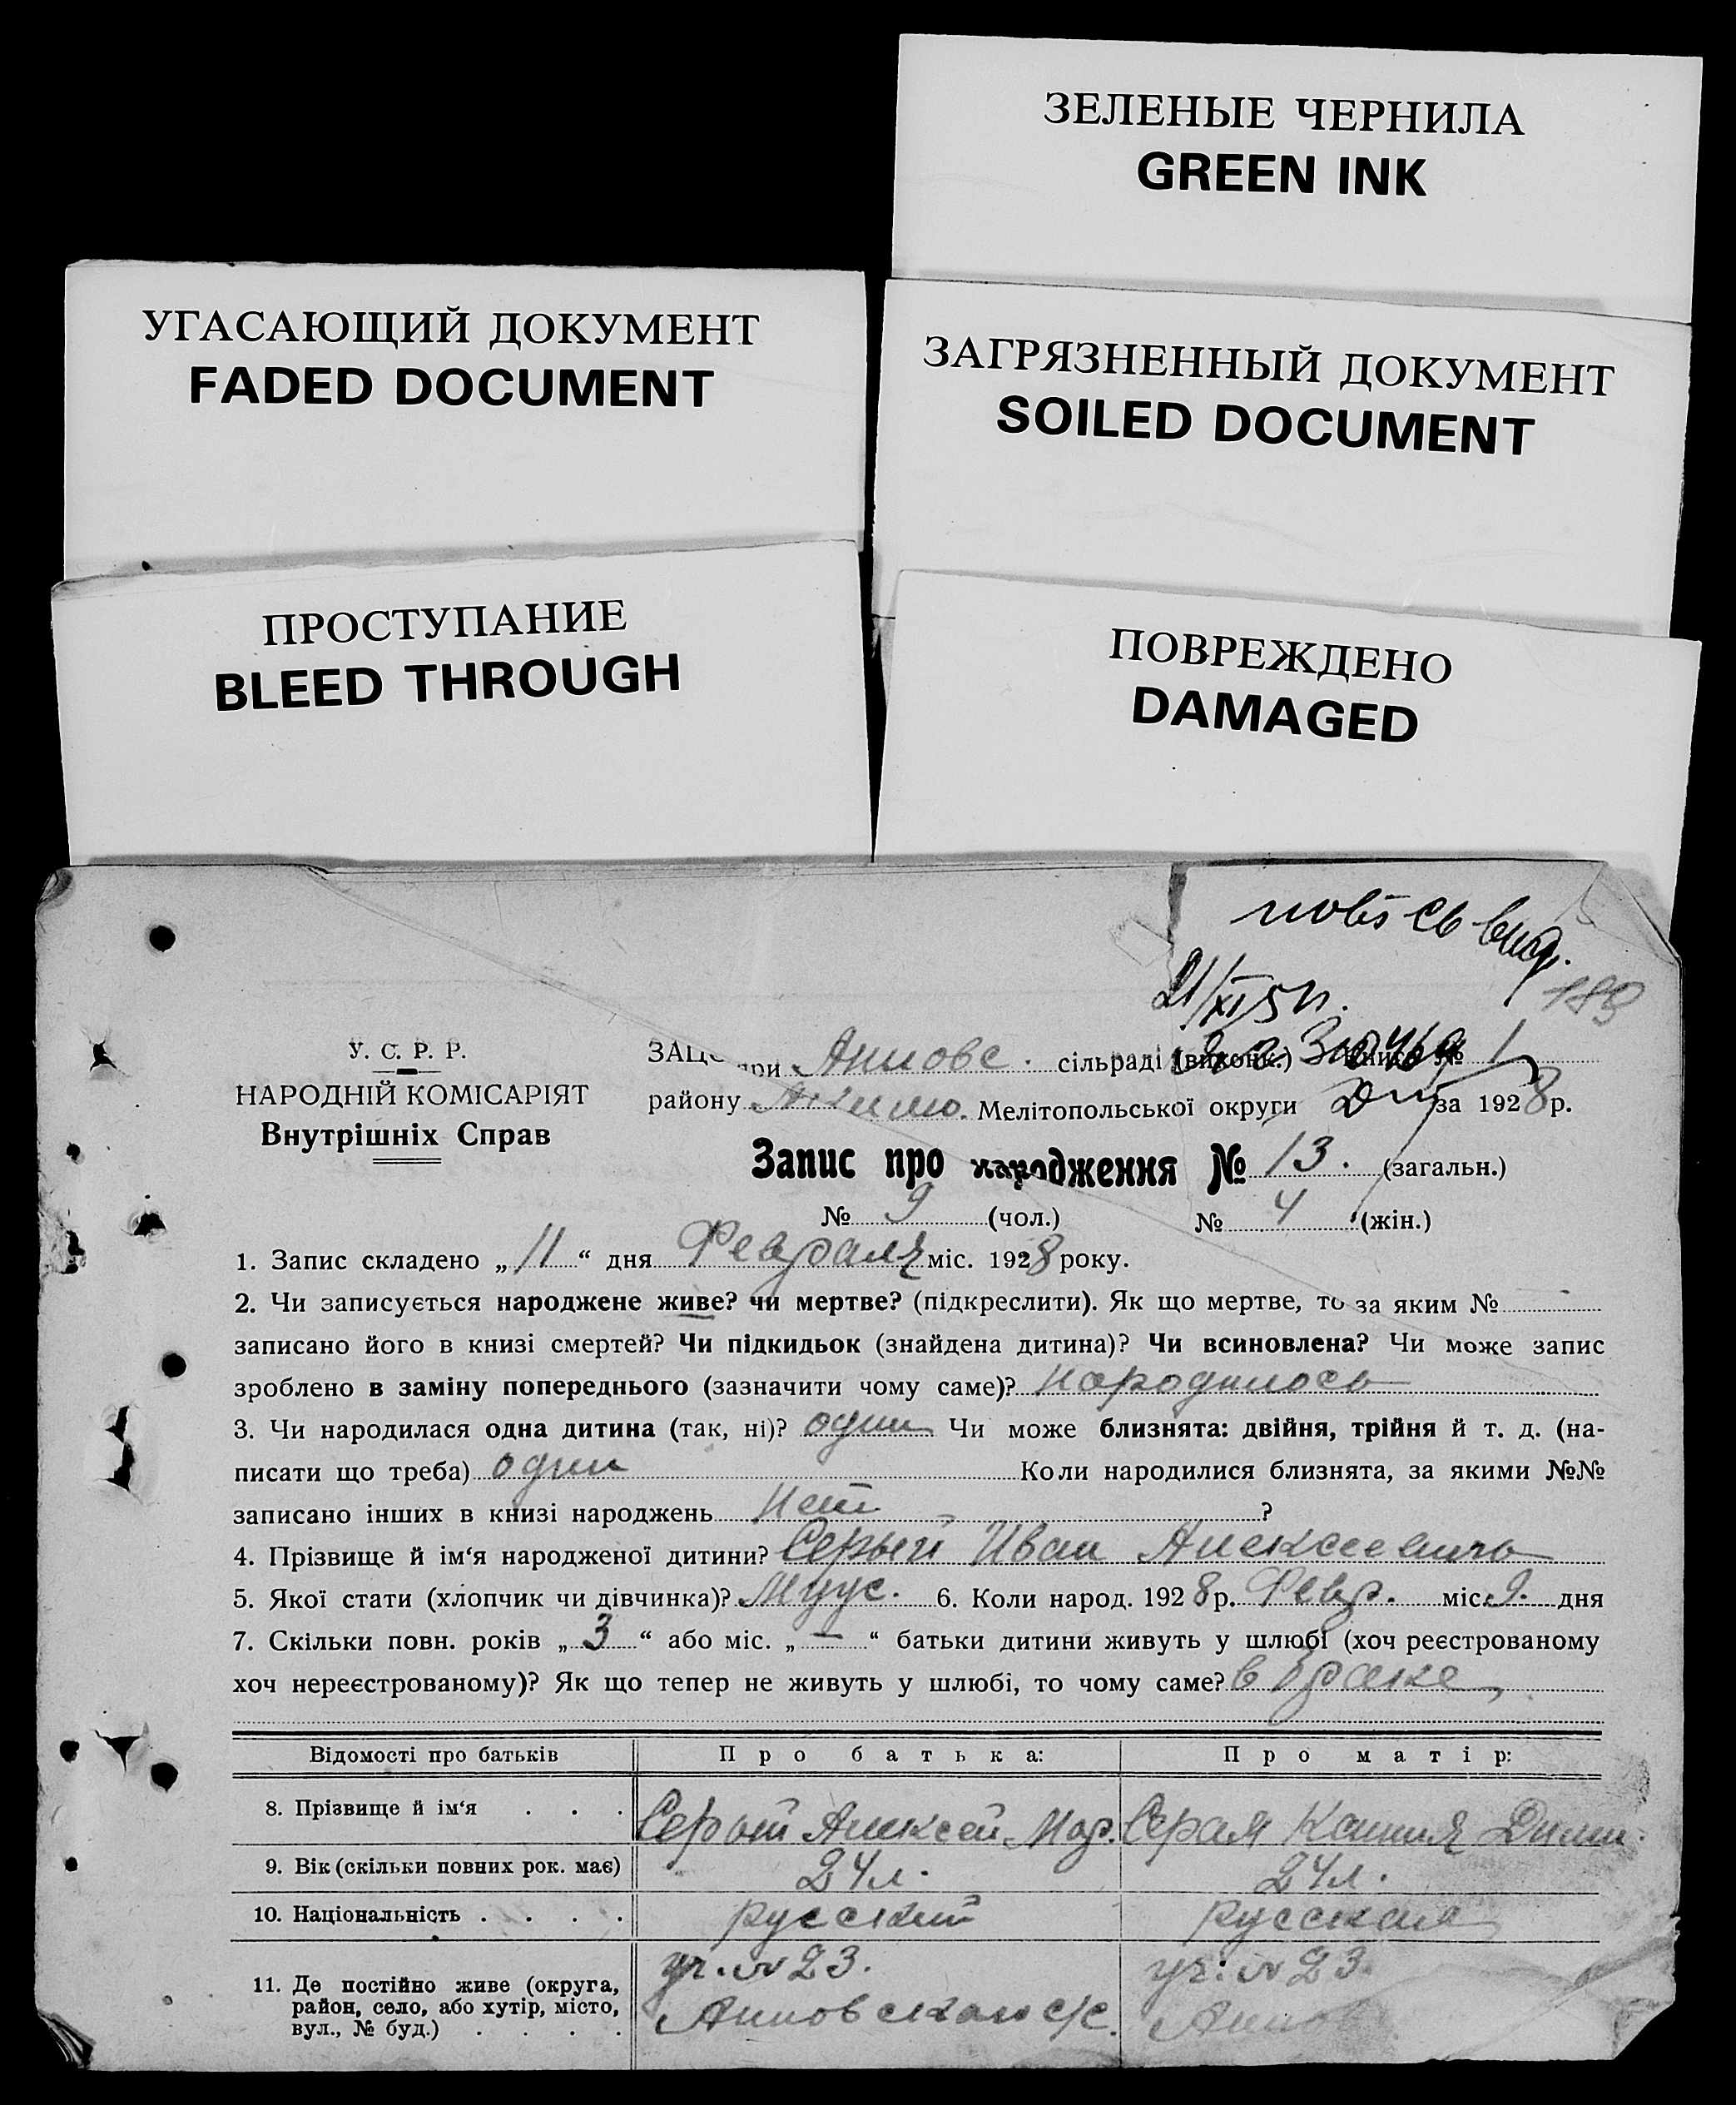 ЗЕЛЕНЫЕ ЧЕРНИЛА
GREEN INK
УГАСАЮЩИЙ ДОКУМЕНТ
FADED DOCUMENT
ЗАГРЯЗНЕННЫЙ ДОКУМЕНТ
SOILED DOCUMENT
ПРОСТУПАНИЕ
BLEED THROUGH
ПОВРЕЖДЕНО
DAMAGED
21/XI
189
У. С. Р. Р.
НАРОДНІЙ КОМІСАРІЯТ
Внутрішніх Справ
при Анновс. сільраді (виконк.) № 1
району Мелітопольської округи за 1928 р.
Запис про народження № 13. (загальн.)
№ 9 (чол.) № 4 (жін.)
1. Запис складено „11“ дня Февраля міс. 1928 року.
2. Чи записується народжене живе? чи мертве? (підкреслити). Як що мертве, то за яким №
записано його в книзі смертей? Чи підкидьок (знайдена дитина)? Чи всиновлена? Чи може запис
зроблено в заміну попереднього (зазначити чому саме)? народилось
3. Чи народилася одна дитина (так, ні)? один Чи може близнята: двійня, трійня й т. д. (на-
писати що треба) один Коли народилися близнята, за якими №№
записано інших в книзі народжень Нет ?
4. Прізвище й ім‘я народженої дитини? Серый Иван Алексеевичь
5. Якої стати (хлопчик чи дівчинка)? Муж. 6. Коли народ. 1928 р. Февр. міс. 9. дня
7. Скільки повн. років „3“ або міс. „—“ батьки дитини живуть у шлюбі (хоч реєстрованому
хоч нереєстрованому)? Як що тепер не живуть у шлюбі, то чому саме? в браке
Відомості про батьків Про батька: Про матір:
8. Прізвище й ім‘я . . . Серый Алексей Мар. Серая
9. Вік (скільки повних рок. має) 24 л. 24 л.
10. Національність . . . . русский русская
11. Де постійно живе (округа, уч. № 23. уч. № 23.
район, село, або хутір, місто, Анновскаго с/с. Аннов
вул., № буд.) . . . .